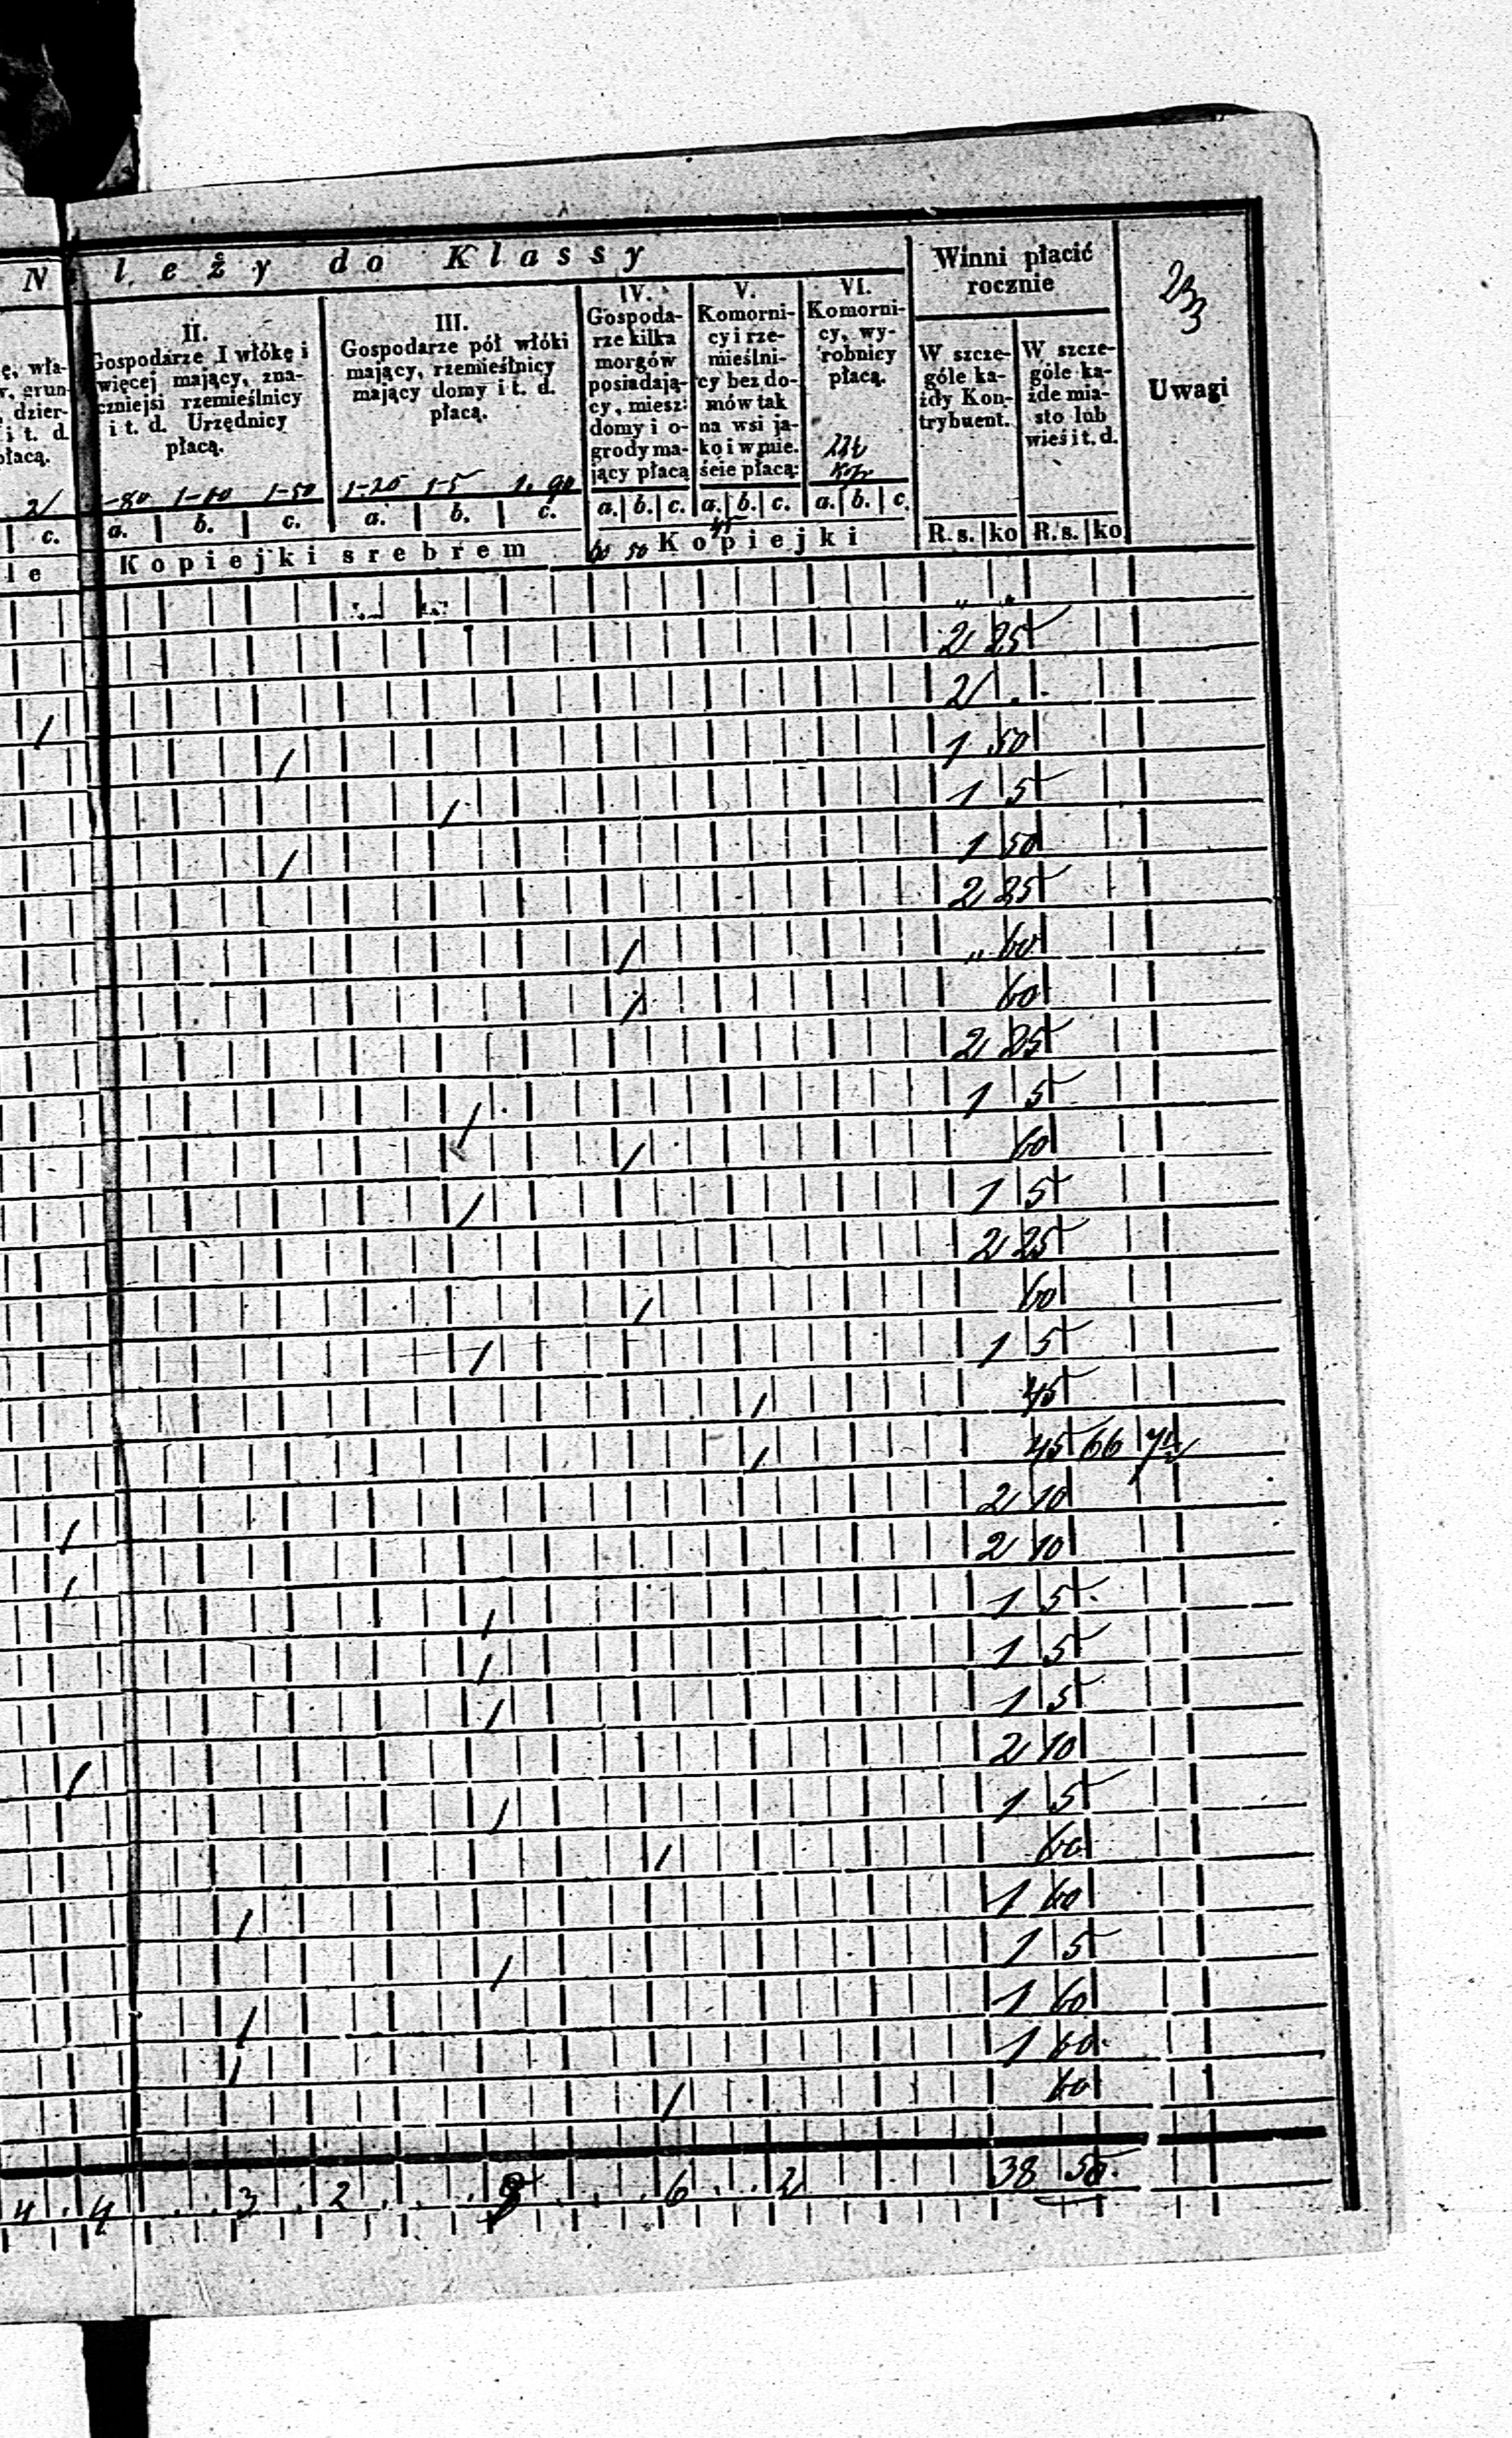 N leży do Klassy
Winni płacić rocznie
233
Uwagi
ę, wła-
grun-
dzier-
i t. d.
płacą.
2
c.
II.
Gospodarze I włókę i
więcej mający, zna-
czniejsi rzemieślnicy
i t. d. Urzędnicy
płacą.
1-80 1-60 1-50
a. b. c.
III.
Gospodarze pół włóki
mający, rzemieślnicy
mający domy i t. d.
płacą.
1-20 1-5 90
a. b. c.
Kopiejki srebrem
IV.
Gospoda-
rze kilka
morgów
posiadają-
cy, miesz:
domy i o-
grody ma-
jący płacą
a. b. c.
60 50
V.
Komorni-
cy i rze-
mieślni-
cy bez do-
mów tak
na wsi ja-
ko i w mie-
ście płacą:
a. b. c.
45
VI.
Komorni-
cy, wy-
robnicy
płacą.
kop
a. b. c.
Kopiejki
W szcze-
góle ka-
żdy Kon-
trybuent.
R. s. ko
W szcze-
góle ka-
żde mia-
sto lub
wieś i t. d.
R. s. ko
le
" "
2 25
/ 2 . .
/ 1 50
/ 1 5
/ 1 50
2 25
/ " 60
/ 60
2 25
/ 1 5
/ 60
/ 1 5
2 25
/ 60
/ 1 5
/ 45
/ 45 66 74
/ 2 10
/ 2 10
/ 1 5
/ 1 5
/ 1 5
/ 2 10
/ 1 5
/ 60
/ 1 60
/ 1 5
/ 1 60
/ 1 60
/ 60
4 . 4 . . . 3 . 2 . . . 6 . . 2 38 50